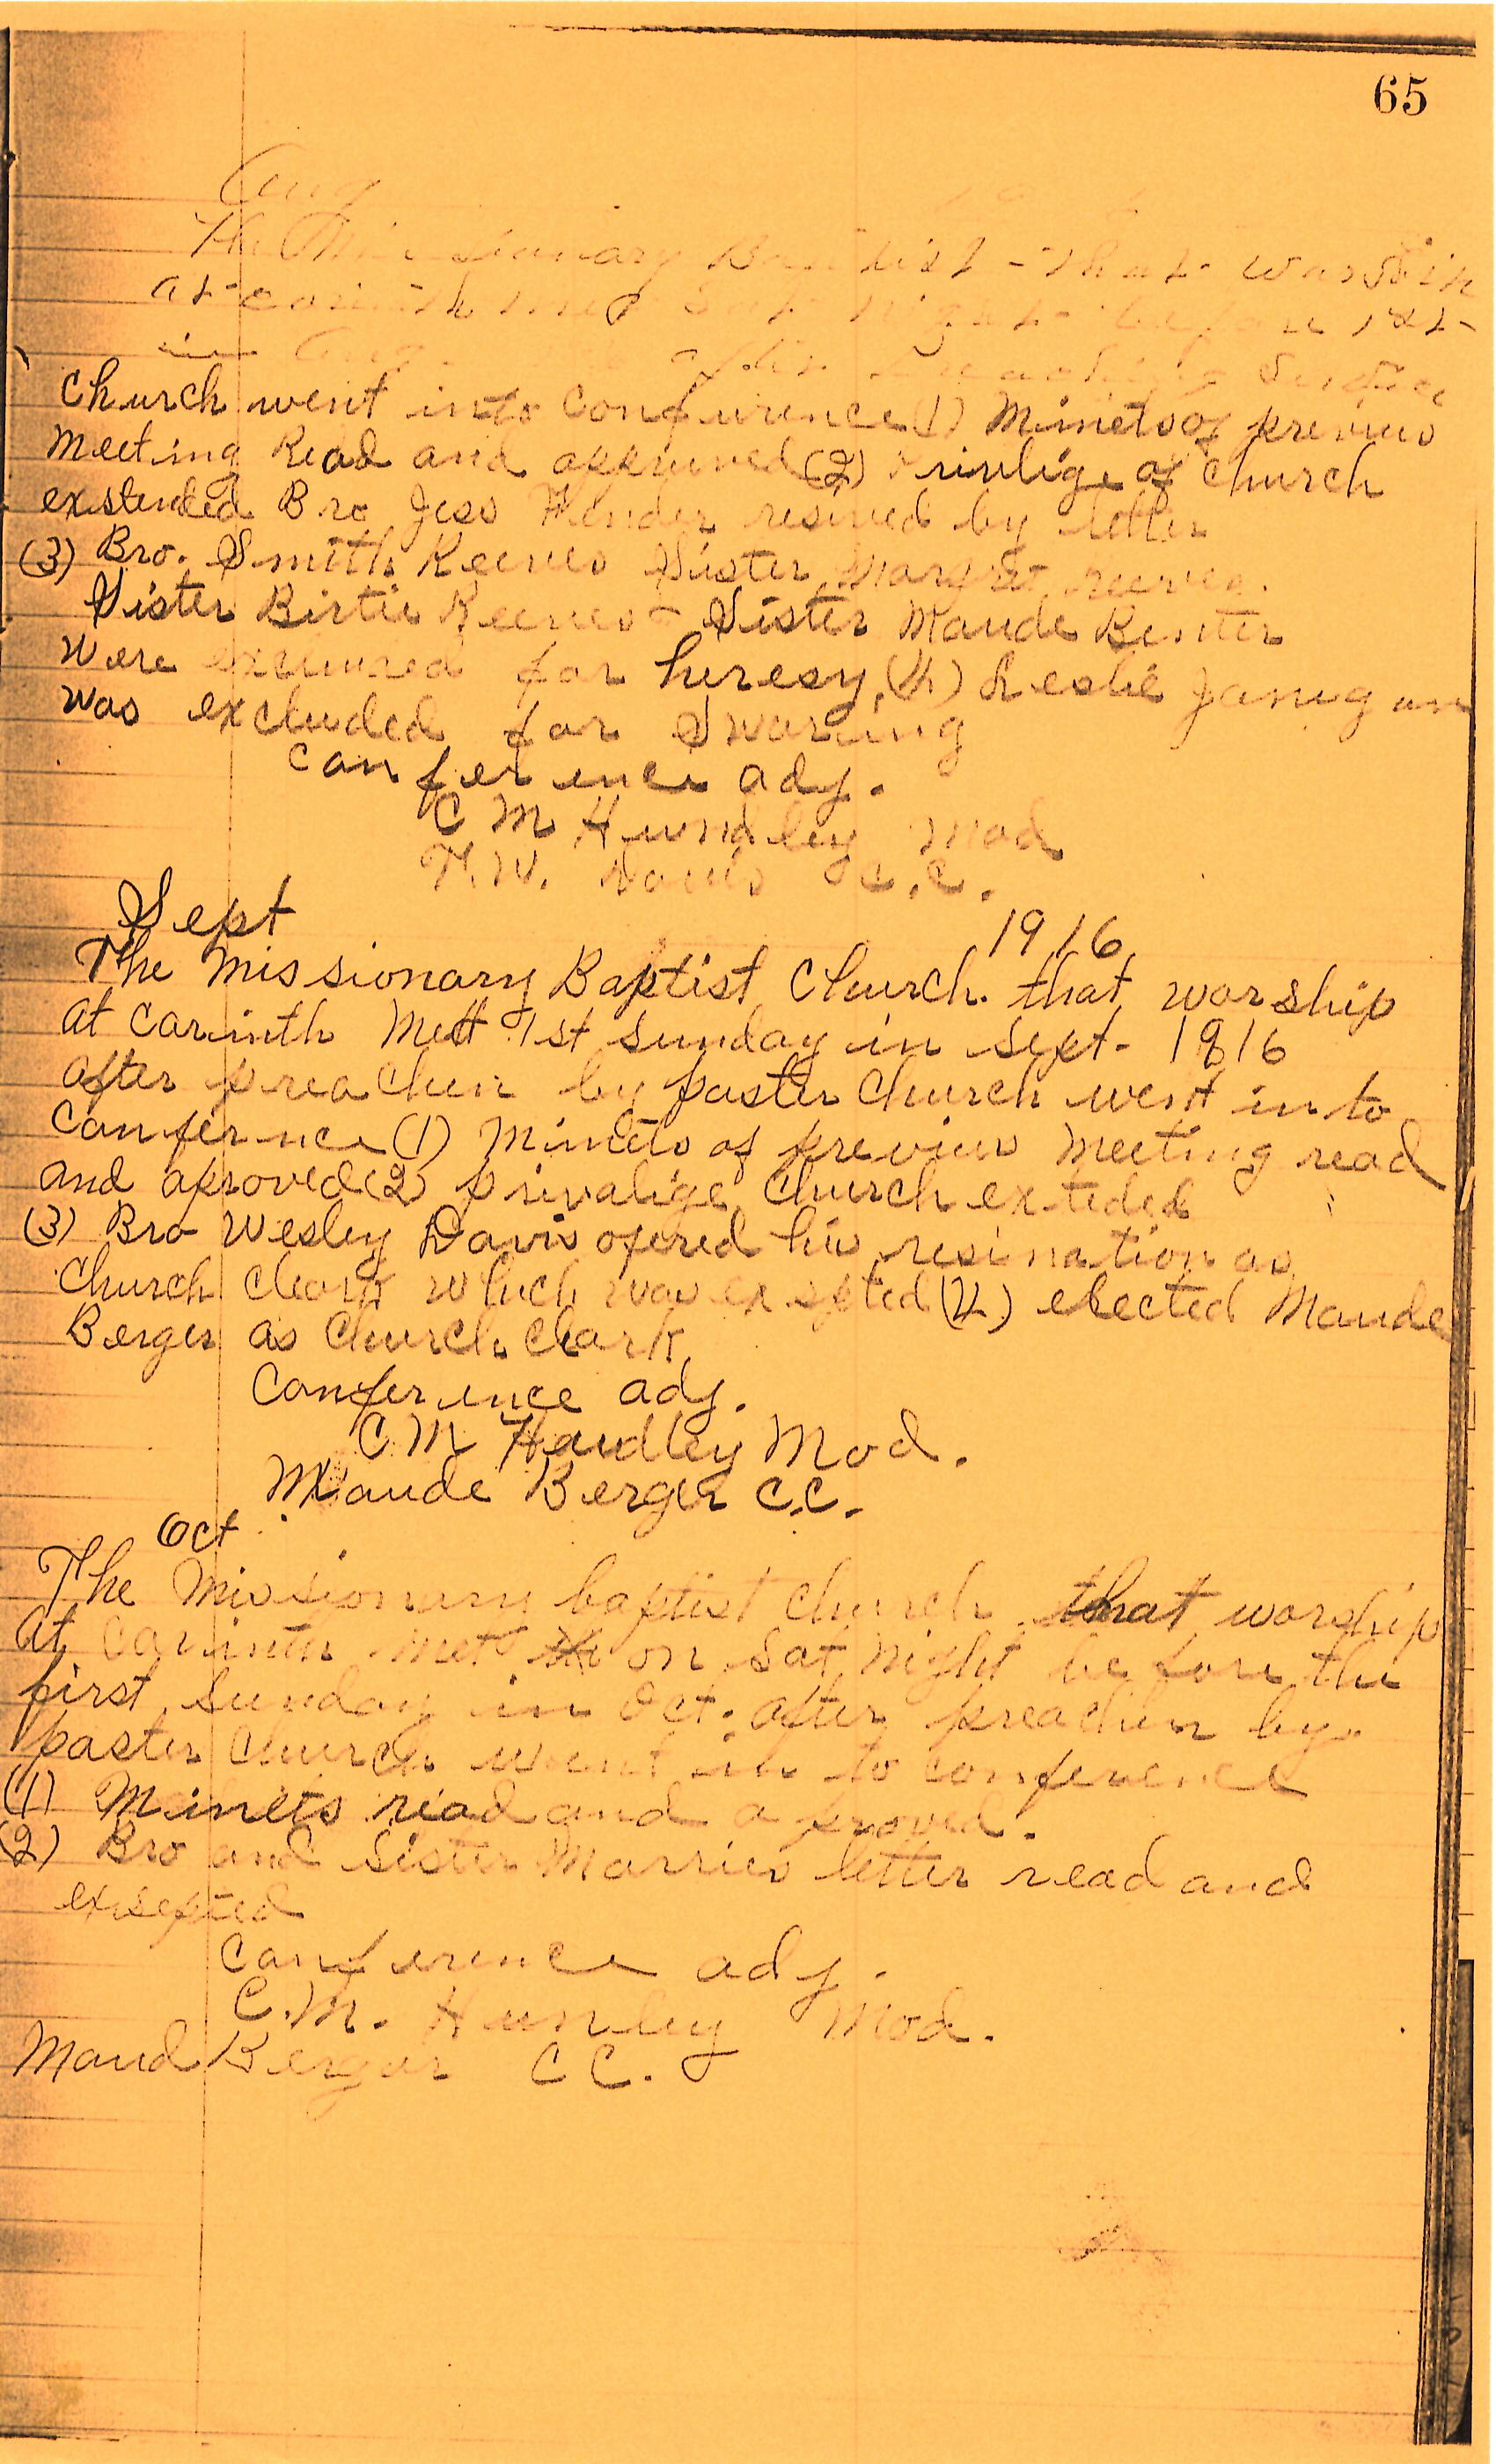 65
Aug
The Missionary Baptist - that worship
at corinth met Sat night before 1st
in Aug. after preaching Service
Church went into Confurence (1) Minets of previus
Meeting Read and appruved (2) Privlige of Church
extended Bro Jess resived by letter
(3) Bro. Smith Reeves Sister Margret reeves.
Sister Birtie Reeves - Sister Maude
Were for heresy, (4) Leslie
was excluded for Swaring
Conference adj.
C M Hundley Mod
T. W. Davis C.C.
Sept 1916
The Missionary Baptist Church. that worship
at Carinth Mett 1st Sunday in Sept - 1916
after preachen by paster Church went in to
Conference (1) Minets of previus Meeting read
and aproved (2) privalige Church exteded
(3) Bro Wesley Davis ofered his resination as
Church Clark which was exsepted (4) elected Maude
Berger as Church Clark
Conference adj.
C M Handley Mod.
Maude Berger C.C.
Oct
The Missionary baptist Church that worship
at Carinth met on Sat night be fore the
first Sunday in Oct. after preachen by
paster Church went in to conference
(1) Minets read and a proved.
(2) Bro and Sister Marries letter read and
exsepted
Conference adj.
C.M. Hunley Mod.
Maud Bergar C C.